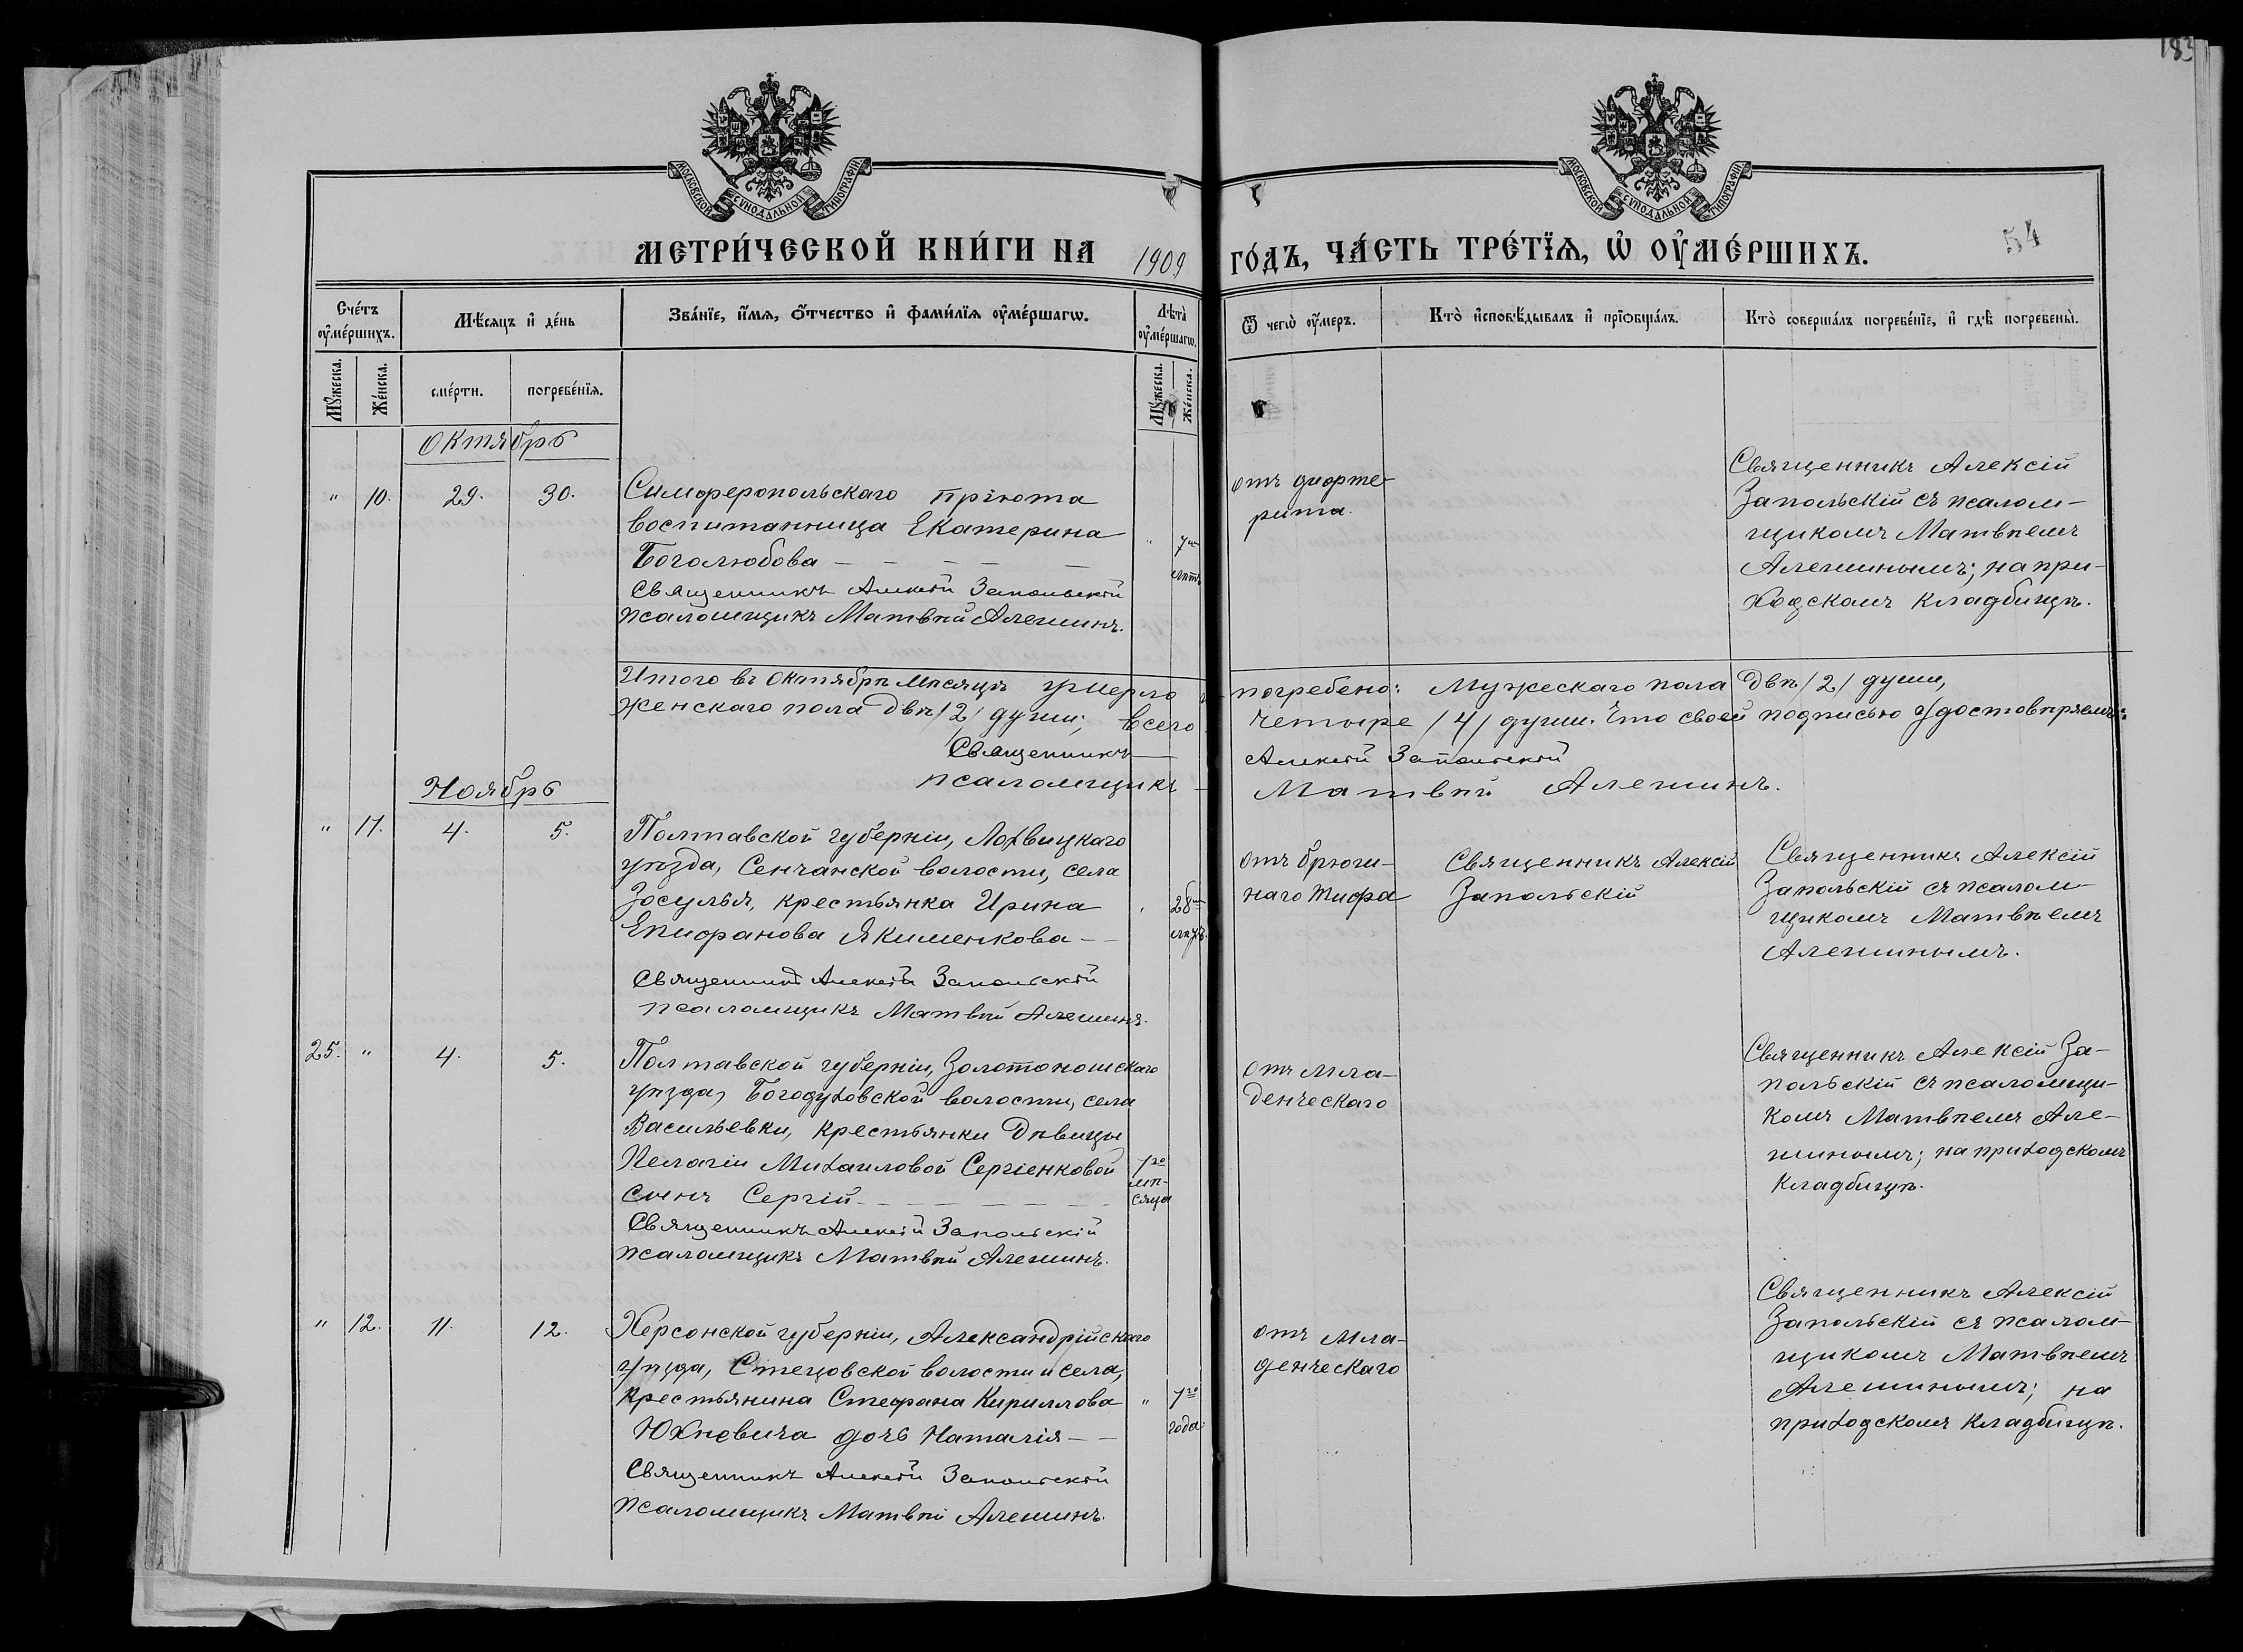 183
МОСКОВСКОЙ СѴНОДАЛЬНОЙ ТИПОГРАФІИ
МОСКОВСКОЙ СѴНОДАЛЬНОЙ ТИПОГРАФІИ
МЕТРИ́ЧЕСКОЙ КНИ́ГИ НА 1909 ГО́ДЪ, ЧА́СТЬ ТРЕ́ТЇѦ, Ѡ҆ ОУ҆МЕ́РШИХЪ.
54
Сче́тъ оу҆ме́ршихъ.
Мѣ́сѧцъ и҆ де́нь
Зва́нїе, и҆́мѧ, ѻ҆́тчество и҆ фами́лїѧ оу҆ме́ршагѡ.
Лѣ́та оу҆ме́ршагѡ.
Ѿ чегѡ̀ оу҆́меръ.
Кто̀ и҆сповѣ́дывалъ и҆ прїѡбща́лъ.
Кто̀ соверша́лъ погребе́нїе, и҆ гдѣ̀ погребены̀.
Мꙋ́жеска.
Же́нска.
сме́рти.
погребе́нїѧ.
Мꙋ́жеска.
Же́нска.
Октябрь
" 10. 29. 30.
Симферопольскаго пріюта
воспитанница Екатерина
Боголюбова — — — — —
" 7ми
лѣтъ
Священникъ Алексій Запольскій
Псаломщикъ Матвѣй Алешинъ.
отъ дифте-
рита.
Священникъ Алексій
Запольскій съ псалом-
щикомъ Матвѣемъ
Алешинымъ; на при-
ходскомъ кладбищѣ.
Итого въ Октябрѣ мѣсяцѣ умерло и погребено: мужескаго пола двѣ /2/ души,
женскаго пола двѣ /2/ души; всего четыре /4/ души. Что своей подписью удостовѣряемъ:
Священникъ Алексій Запольскій
псаломщикъ Матвѣй Алешинъ.
Ноябрь
" 11. 4. 5.
Полтавской губерніи, Лохвицкаго
уѣзда, Сенчанской волости, села
Зосулья, крестьянка Ирина
Епифанова Якименкова — —
" 28ми
лѣтъ
Священникъ Алексій Запольскій
псаломщикъ Матвѣй Алешинъ.
отъ брюш-
наго тифа
Священникъ Алексій
Запольскій
Священникъ Алексій
Запольскій съ псалом-
щикомъ Матвѣемъ
Алешинымъ.
25. " 4. 5.
Полтавской губерніи, Золотоношскаго
уѣзда, Богодуховской волости, села
Васильевки, крестьянки Дѣвицы
Пелагіи Михаиловой Сергіенковой
сынъ Сергій — — — — — —
1го
мѣ-
сяца
Священникъ Алексій Запольскій
Псаломщикъ Матвѣй Алешинъ.
отъ мла-
денческаго
Священникъ Алексій За-
польскій съ псаломщи-
комъ Матвѣемъ Але-
шинымъ; на приходскомъ
кладбищѣ.
" 12. 11. 12.
Херсонской губерніи, Александрійскаго
уѣзда, Стецовской волости и села,
крестьянина Стефана Кириллова
Юхновича дочь Наталія — —
" 1го
года
Священникъ Алексій Запольскій
Псаломщикъ Матвѣй Алешинъ.
отъ мла-
денческаго
Священникъ Алексій
Запольскій съ псалом-
щикомъ Матвѣемъ
Алешинымъ; на
приходскомъ кладбищѣ.